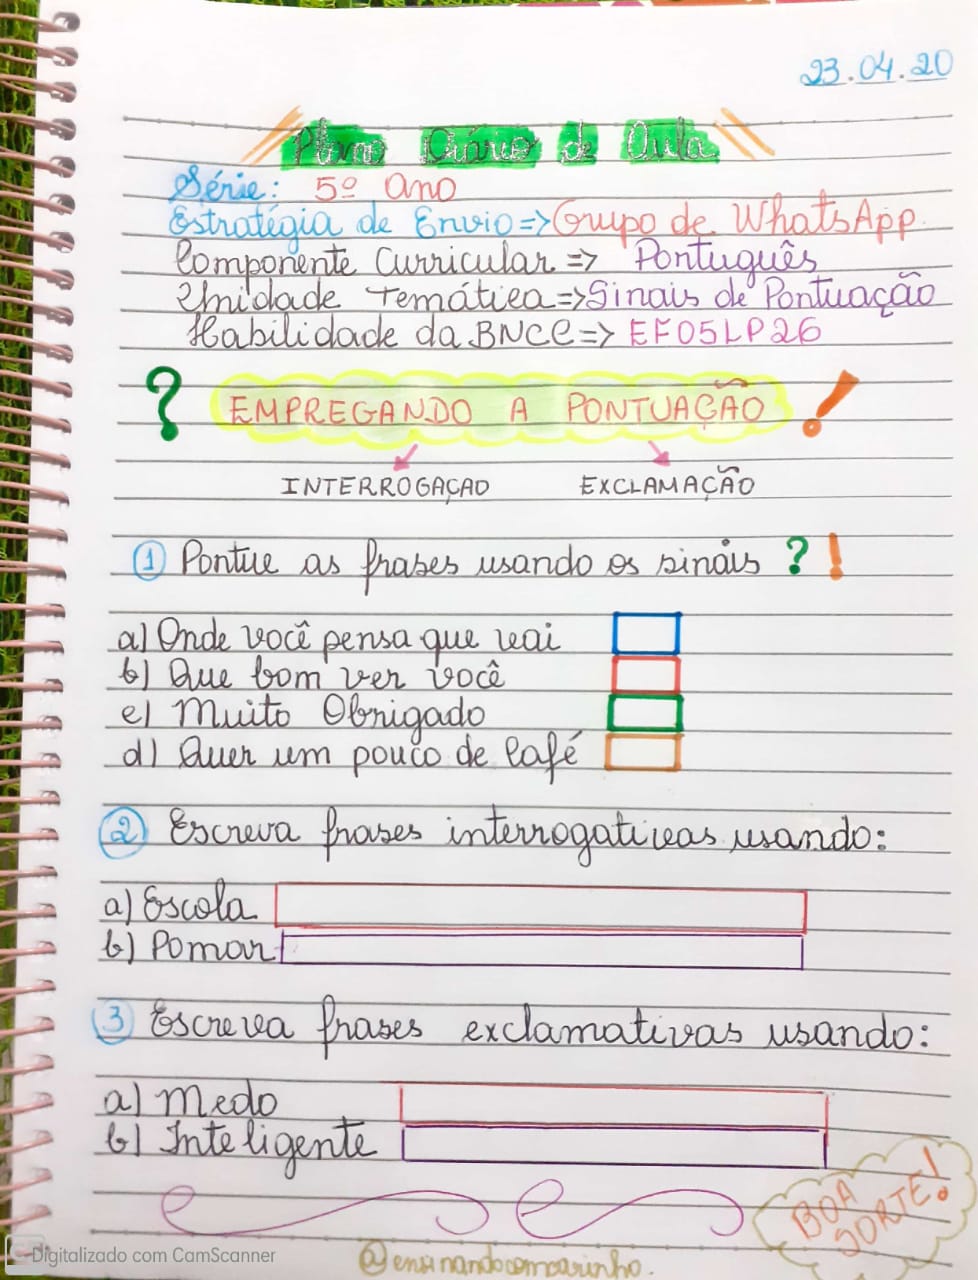 23.04.20
Plano Diário de Aula
Série: 5º ano
Estratégia de Envio=>Grupo de WhatsApp.
Componente Curricular=> Português
Unidade Temática=>Sinais de Pontuação
Habilidade da BNCC=> EF05LP26
? EMPREGANDO A PONTUAÇÃO !
INTERROGAÇAO EXCLAMAÇÃO
1 Pontue as frases usando os sinais ? !
a) Onde você pensa que vai
b) Que bom ver você
c) Muito Obrigado
d) Quer um pouco de Café
2 Escreva frases interrogativas usando:
a) Escola
b) Pomar
3 Escreva frases exclamativas usando:
a) Medo
b) Inteligente
BOA
SORTE!
@ensinandocomcarinho.
CS Digitalizado com CamScanner